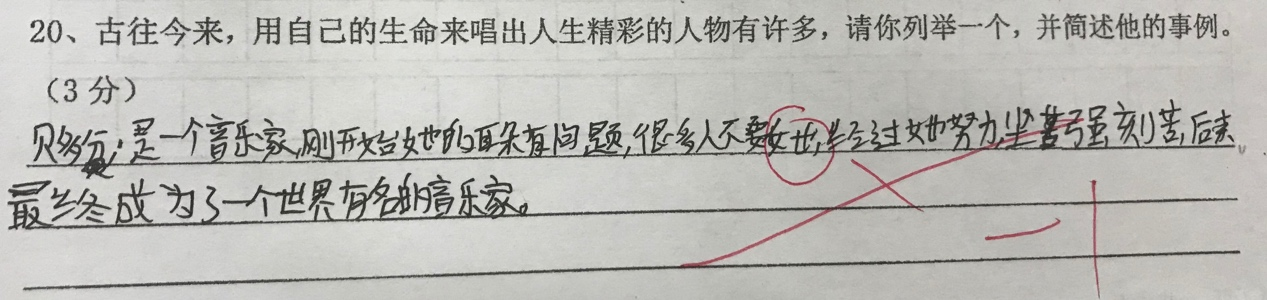 20、古往今来，用自己的生命来唱出人生精彩的人物有许多，请你列举一个，并简述他的事例。
（3 分）
贝多芬：是一个音乐家，刚开始她的耳朵有问题，很多人不要她，经过她努力，坚强，刻苦，后来，
最终成为了一个世界有名的音乐家。
-1